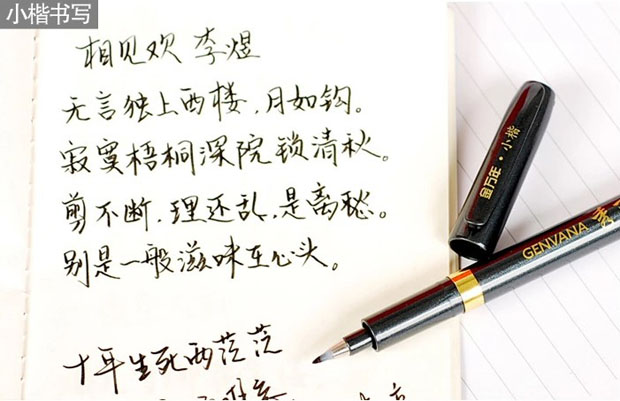 小楷书写
相见欢 李煜
无言独上西楼，月如钩。
寂寞梧桐深院锁清秋。
剪不断，理还乱，是离愁。
别是一般滋味在心头。
十年生死两茫茫
金万年·小楷
GENVANA